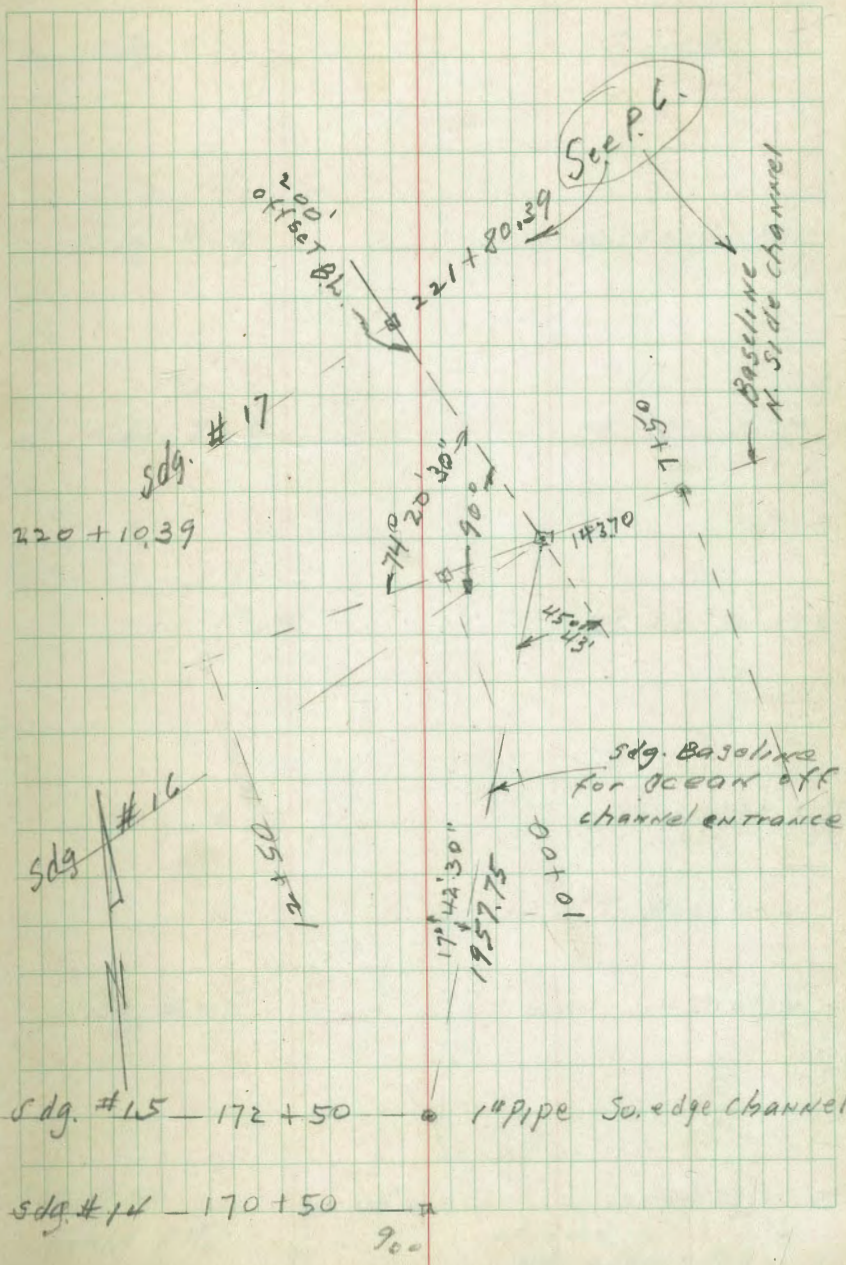 See P. 6.
200'
offset B.L.
221 + 80.39
Baseline
N. Side channel
sdg. # 17
7+50
220 + 10.39
74° 20' 30"
90°
14370
45°
43'
sdg. Baseline
for ocean off
channel entrance
sdg # 16
12+50
17° 42' 30"
1957.75
10+00
N
sdg. #15 — 172 + 50 — 1" Pipe So. edge channel
sdg. #14 — 170 + 50